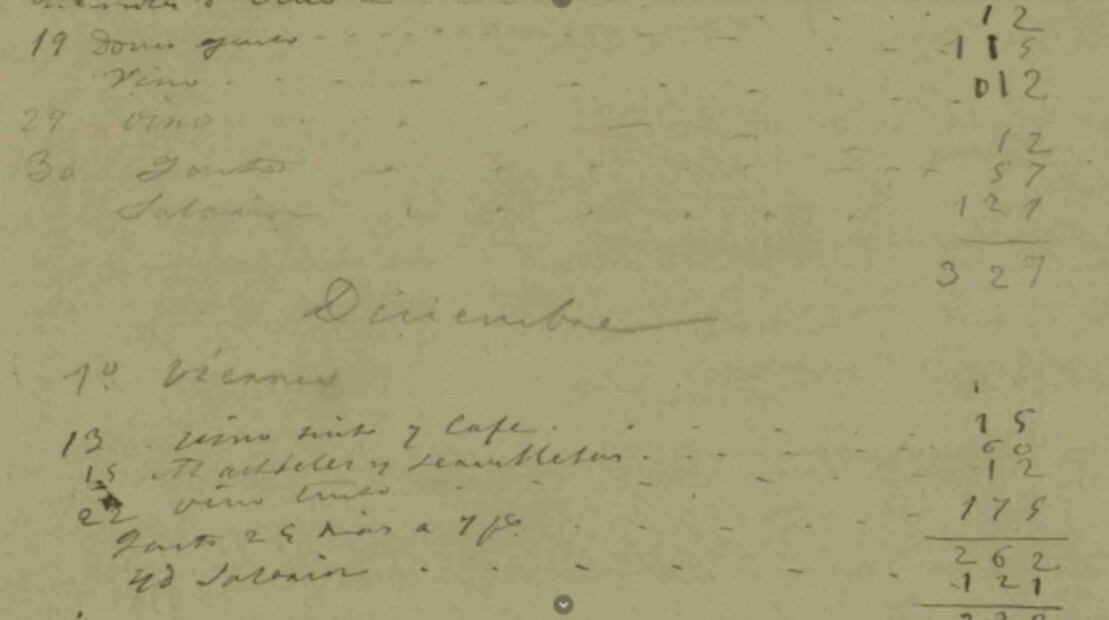 12
19 Domo gasto - - - 115
Vino - - - 012
29 vino - - - 12
30 Gasto - - - 57
Salarios - - - 121
327
Diciembre
1º Viernes
13 vino tinto y Cafe - - - 15
15 Manteles y servilletas - - - 60
22 vino tinto - - - 12
Gasto 25 dias a 7 ps. - - - 175
262
Yd Salarios - - - 121